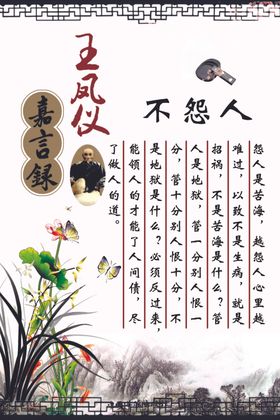 王凤仪
嘉言録
不怨人
怨人是苦海，越怨人心里越
难过，以致不是生病，就是
招祸，不是苦海是什么？管
人是地狱，管一分别人恨一
分，管十分别人恨十分，不
是地狱是什么？必须反过来，
能领人的才能了人间债，尽
了做人的道。